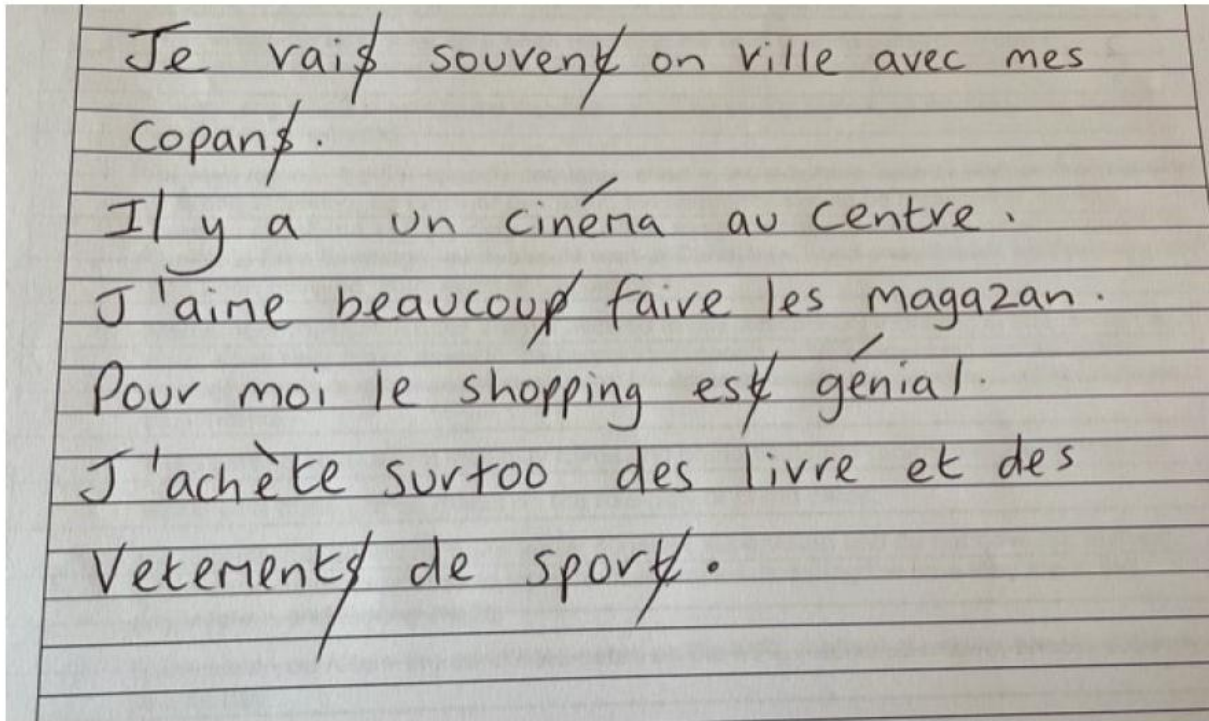 Je vais souvent on ville avec mes
copans.
Il y a un cinéma au centre.
J'aime beaucoup faire les magazan.
Pour moi le shopping est génial.
J'achète surtoo des livre et des
Vetements de sport.